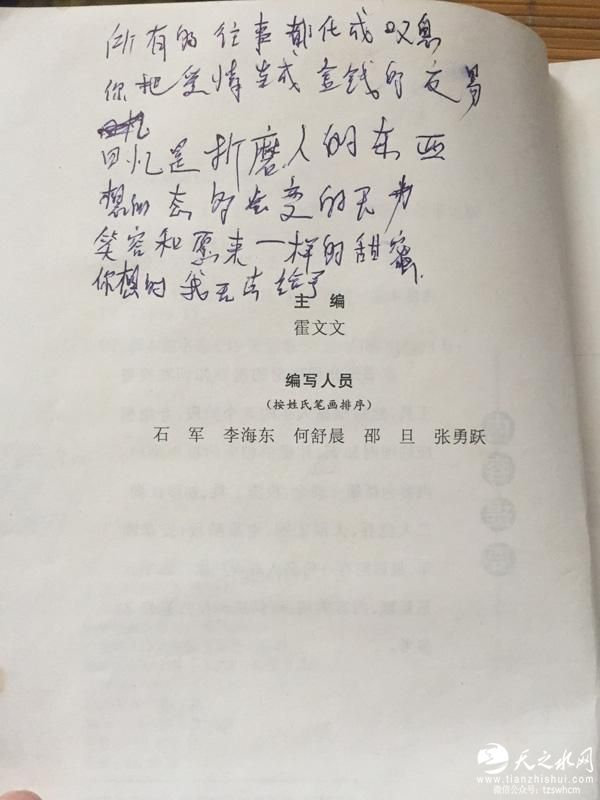 所有的往事都化成叹息
你把爱情当成金钱的交易
回忆
回忆是折磨人的东西
想的 变的
笑容和原来一样的甜蜜
你想的我无法给予
主 编
霍文文
编写人员
(按姓氏笔画排序)
石 军 李海东 何舒晨 邵 旦 张勇跃
天之水网
www.tianzhishui.com
微信公众号:tzswhcm